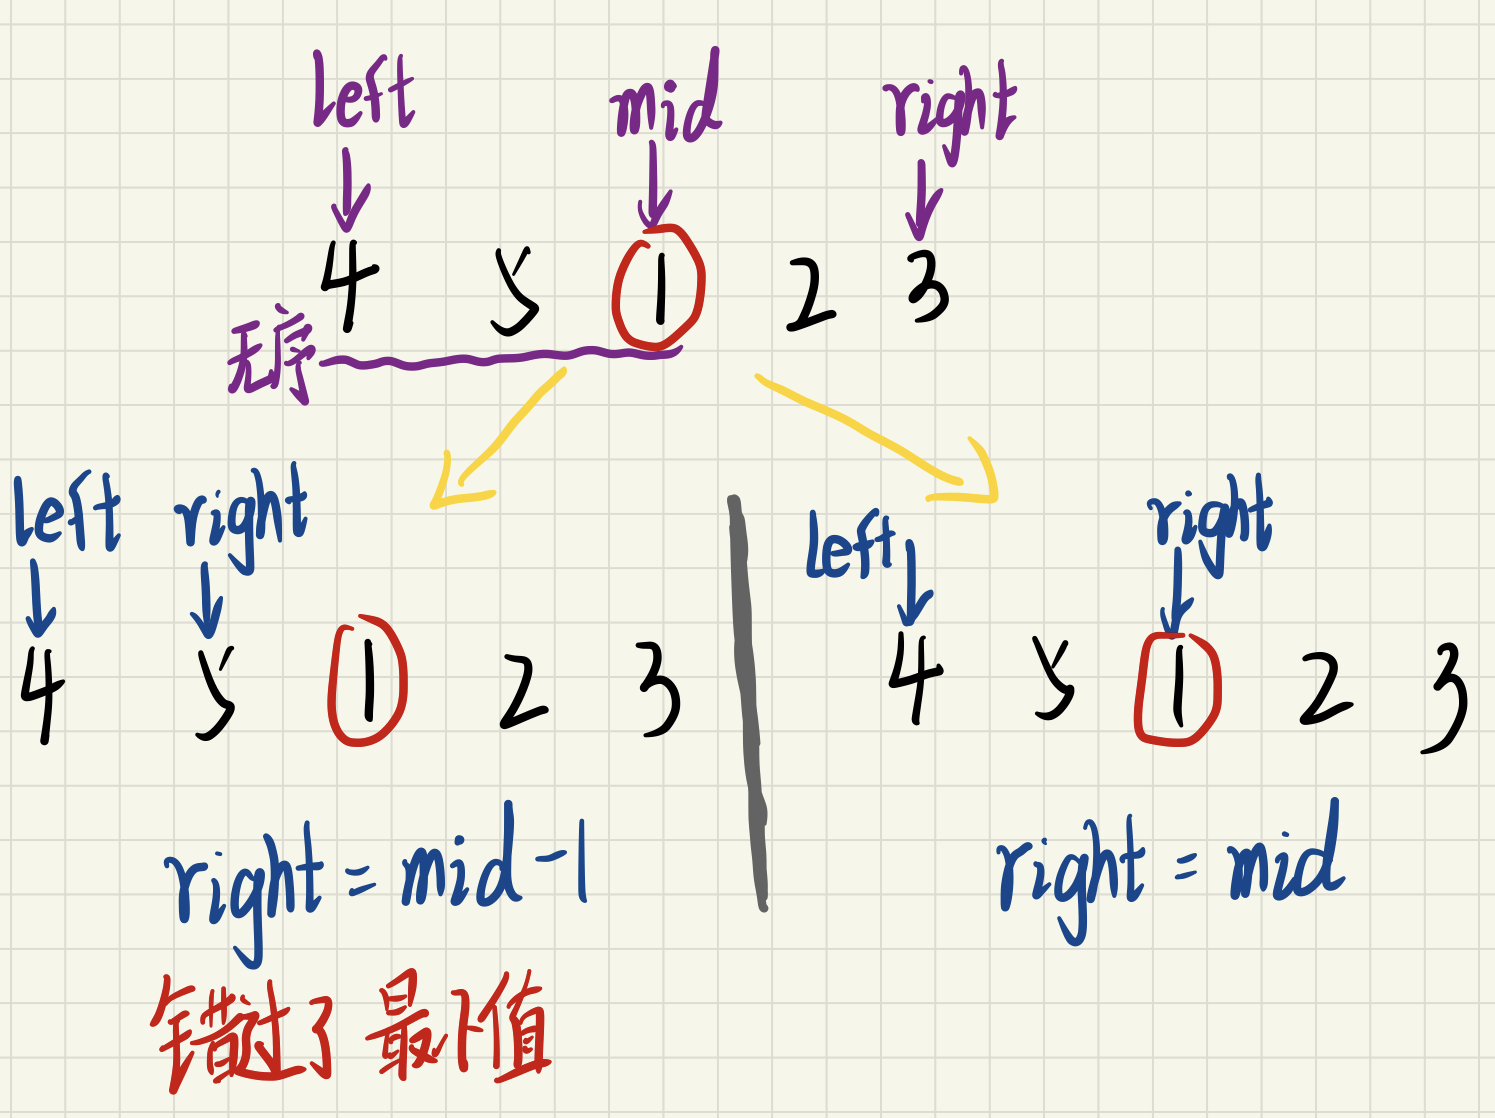 left mid right
4 5 1 2 3
无序
left right
4 5 1 2 3
right = mid - 1
错过了最小值
left right
4 5 1 2 3
right = mid